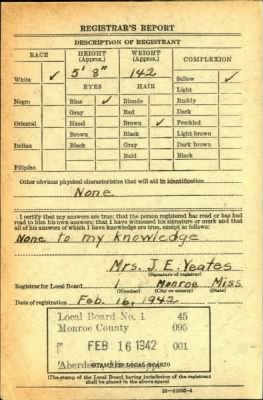 REGISTRAR'S REPORT
DESCRIPTION OF REGISTRANT
RACE HEIGHT (Approx.) WEIGHT (Approx.) COMPLEXION
White ✓ 5' 8" 142 Sallow ✓
EYES HAIR Light
Negro Blue ✓ Blonde Ruddy
Gray Red Dark
Oriental Hazel Brown ✓ Freckled
Brown Black Light brown
Indian Black Gray Dark brown
Bald Black
Filipino
Other obvious physical characteristics that will aid in identification
None
I certify that my answers are true; that the person registered has read or has had
read to him his own answers; that I have witnessed his signature or mark and that
all of his answers of which I have knowledge are true, except as follows:
None to my knowledge
Mrs. J. E. Yeates
(Signature of registrar)
Registrar for Local Board Monroe Miss
(Number) (City or county) (State)
Date of registration Feb. 16, 1942
Local Board No. 1 45
Monroe County 095
FEB 16 1942 001
Aberdeen
(STAMP OF LOCAL BOARD)
(The stamp of the Local Board having jurisdiction of the registrant
shall be placed in the above space)